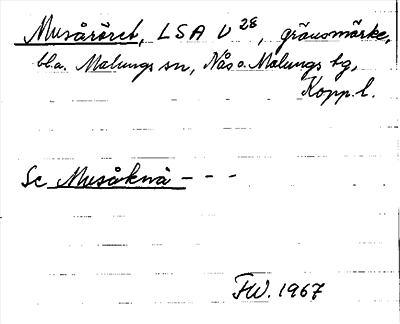 Musåröret, LSA U 28, gränsmärke,
bl.a. Malungs sn, Nås o. Malungs tg,
Kopp. l.
Se Musåknä - - -
FW. 1967